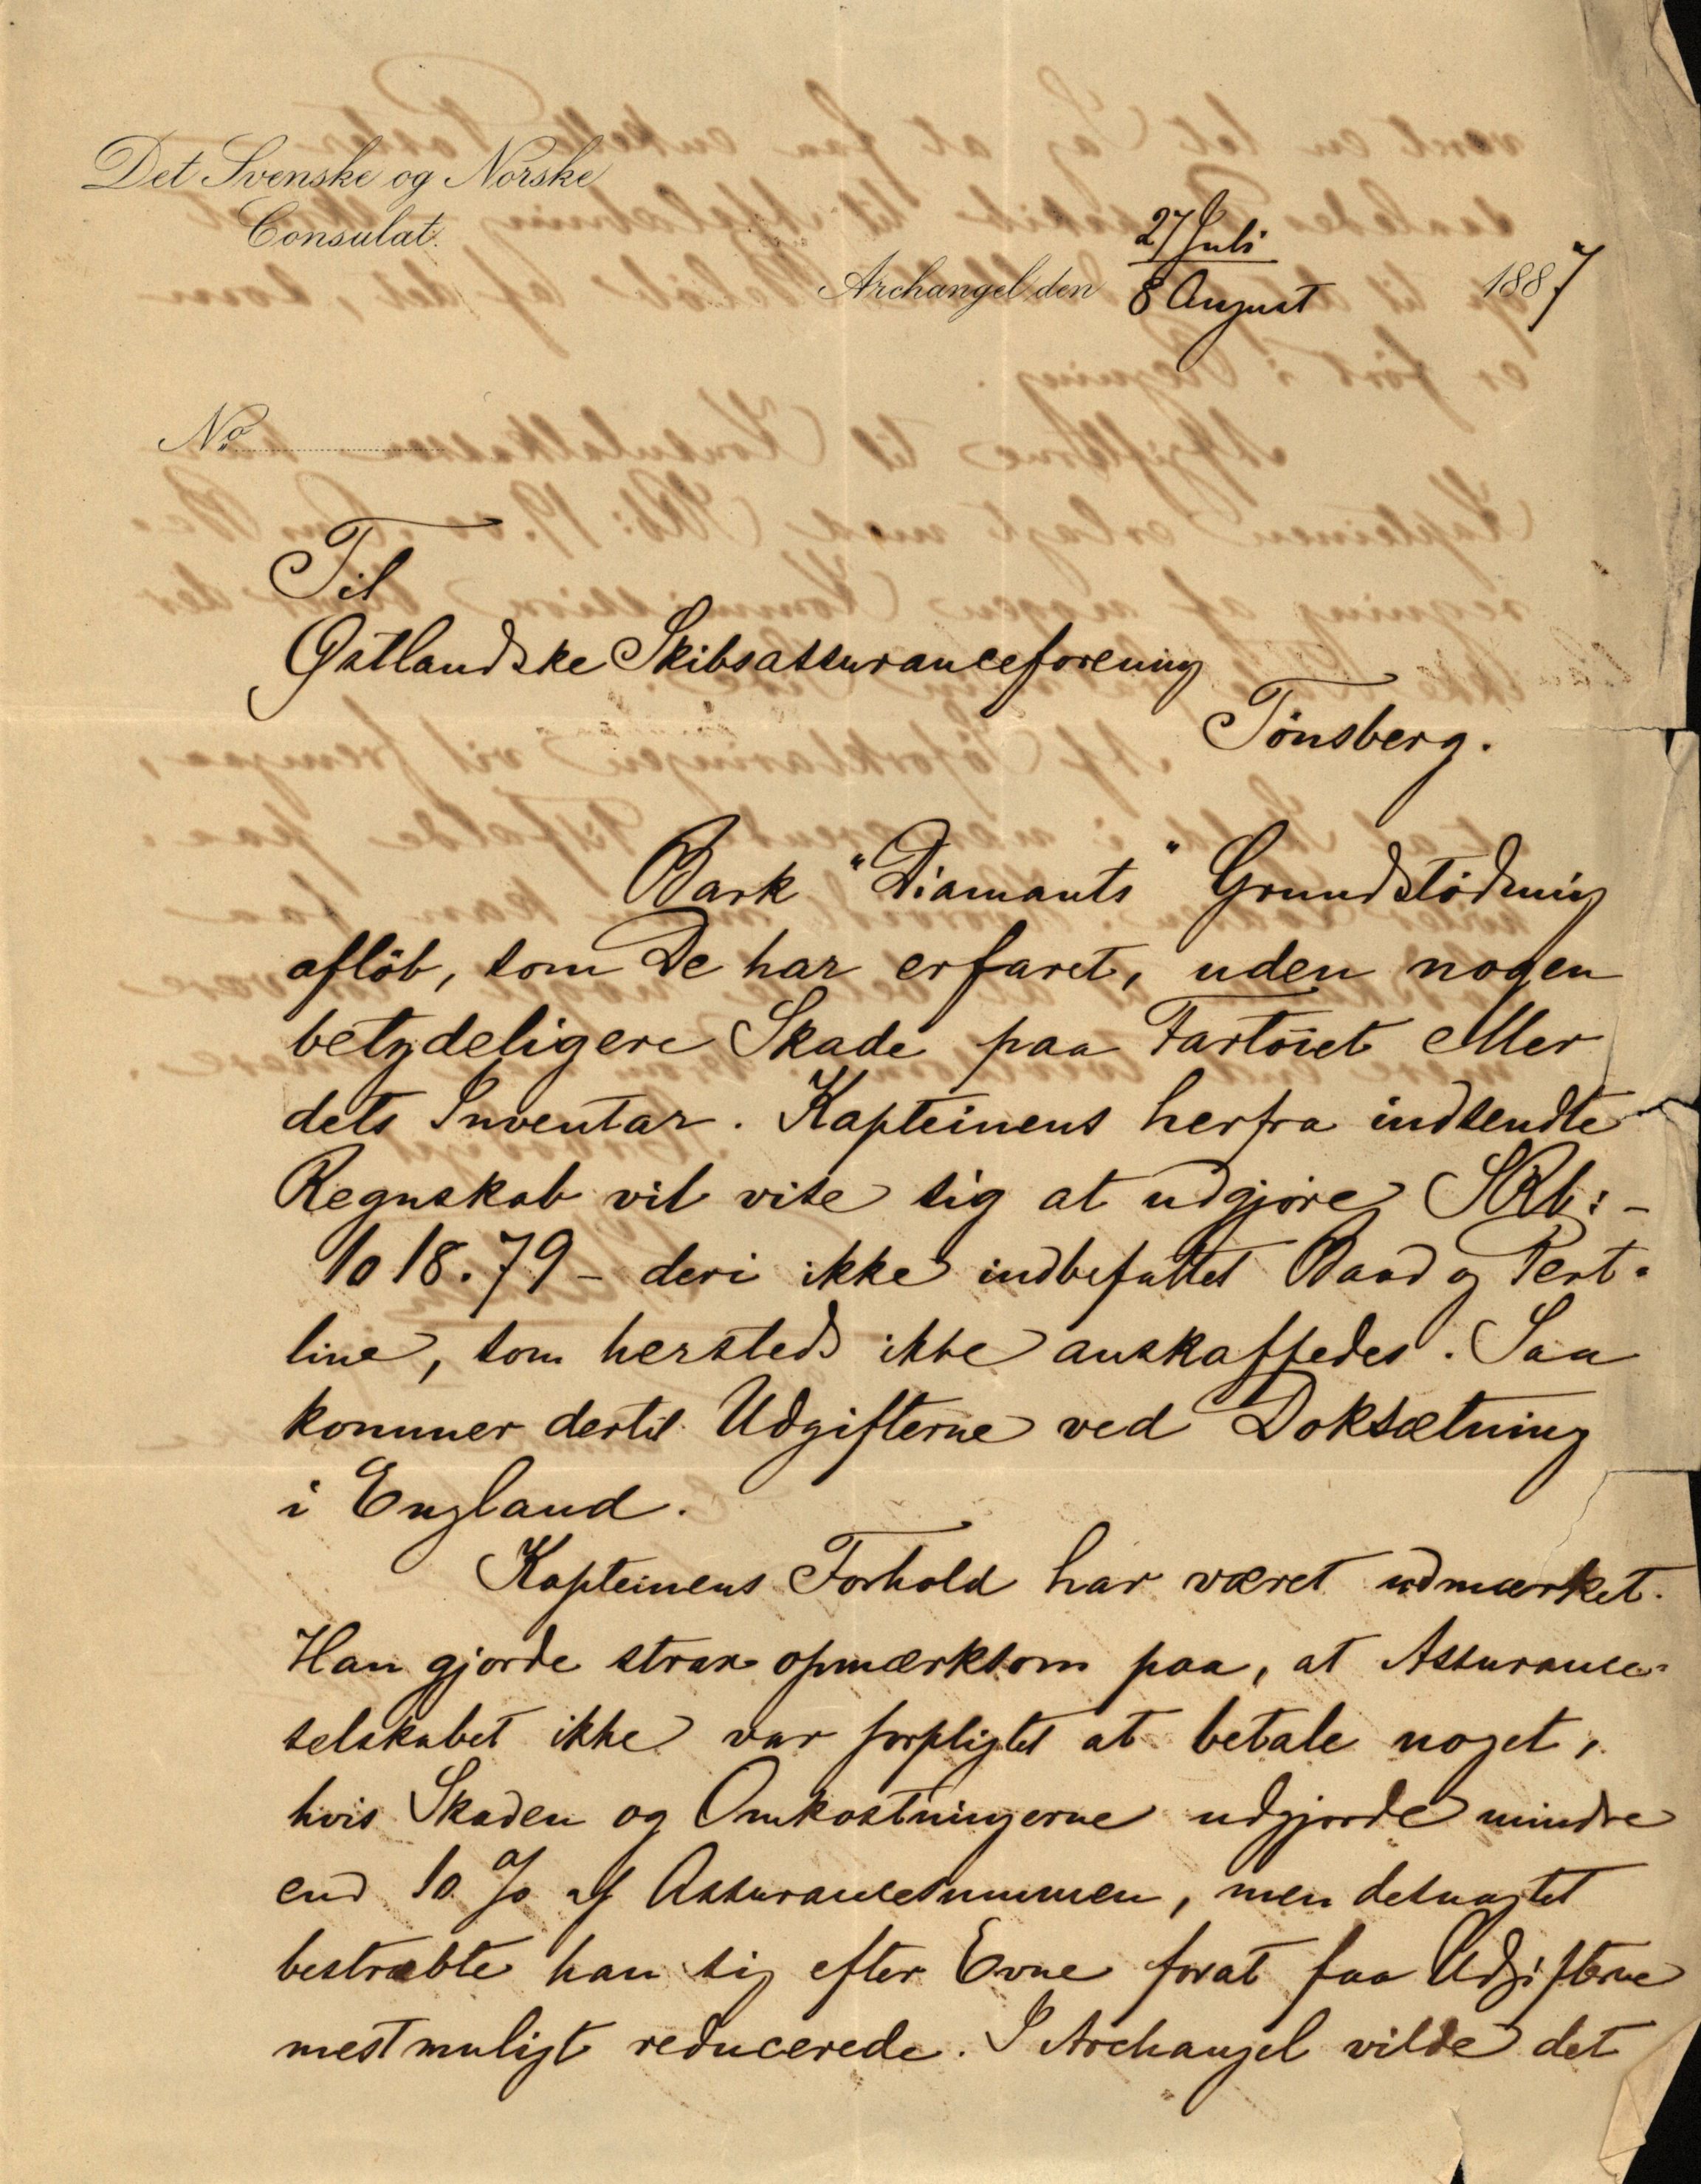 Det Svenske og Norske
Consulat.
Archangel den 27 Juli
8 August 1887
No
Til
Østlandske Skibsassuranceforening
Tönsberg.
Bark "Diamants" Grundstødning
afløb, som De har erfaret, uden nogen
betydeligere Skade paa Fartöiet eller
dets Inventar. Kapteinens herfra indsendte
Regnskab vil vise sig at udgjöre SRb:-
1018.79 - deri ikke indbefattet Baad og Pert-
line, som hersteds ikke anskaffedes. Saa
kommer dertil Udgifterne ved Doksætning
i England.
Kapteinens Forhold har været udmærket.
Han gjorde strax opmærksom paa, at Assurance-
selskabet ikke var forpligtet at betale noget,
hvis Skaden og Omkostningerne udgjorde mindre
end 10 % af Assurancesummen, men desuagtet
bestræbte han sig efter Evne forat faa Udgifterne
mestmuligt reducerede. I Archangel vilde det